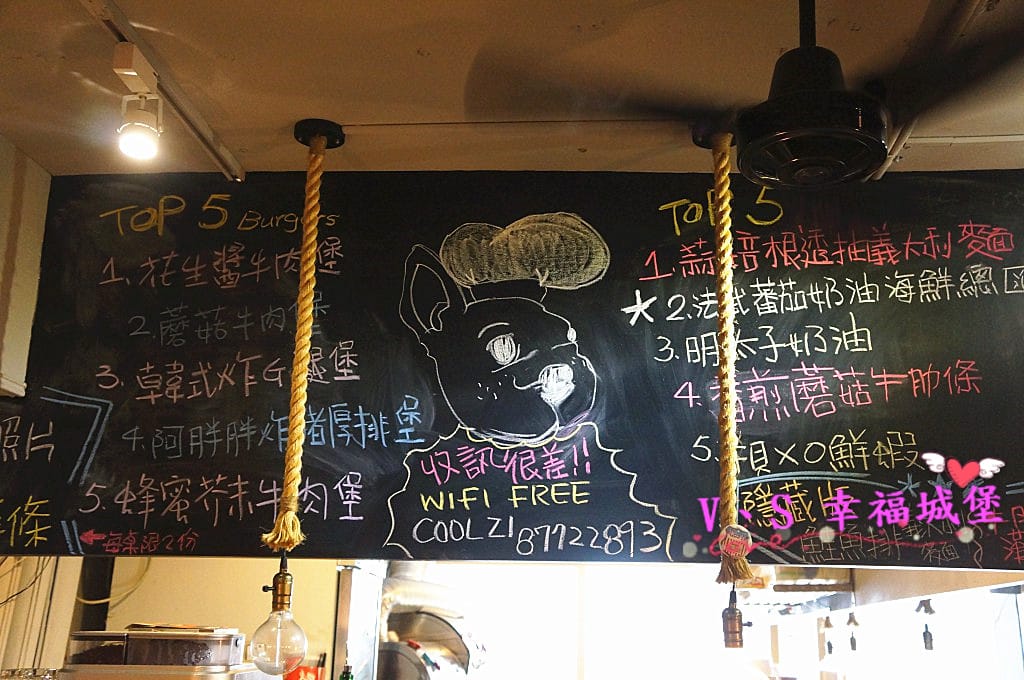 TOP 5 Burgers
1. 花生醬牛肉堡
2. 蘑菇牛肉堡
3. 韓式炸G腿堡
4. 阿胖胖炸豬厚排堡
5. 蜂蜜芥末牛肉堡
每桌限2份
照片
條
收訊很差!!
WIFI FREE
COOLZI 87722893
TOP 5
1. 蒜 培根透抽義大利麵
★2. 法式蕃茄奶油海鮮總匯
3. 明太子奶油
4. 香煎蘑菇牛肋條
5. XO鮮蝦
隱藏版
V♥S 幸福城堡